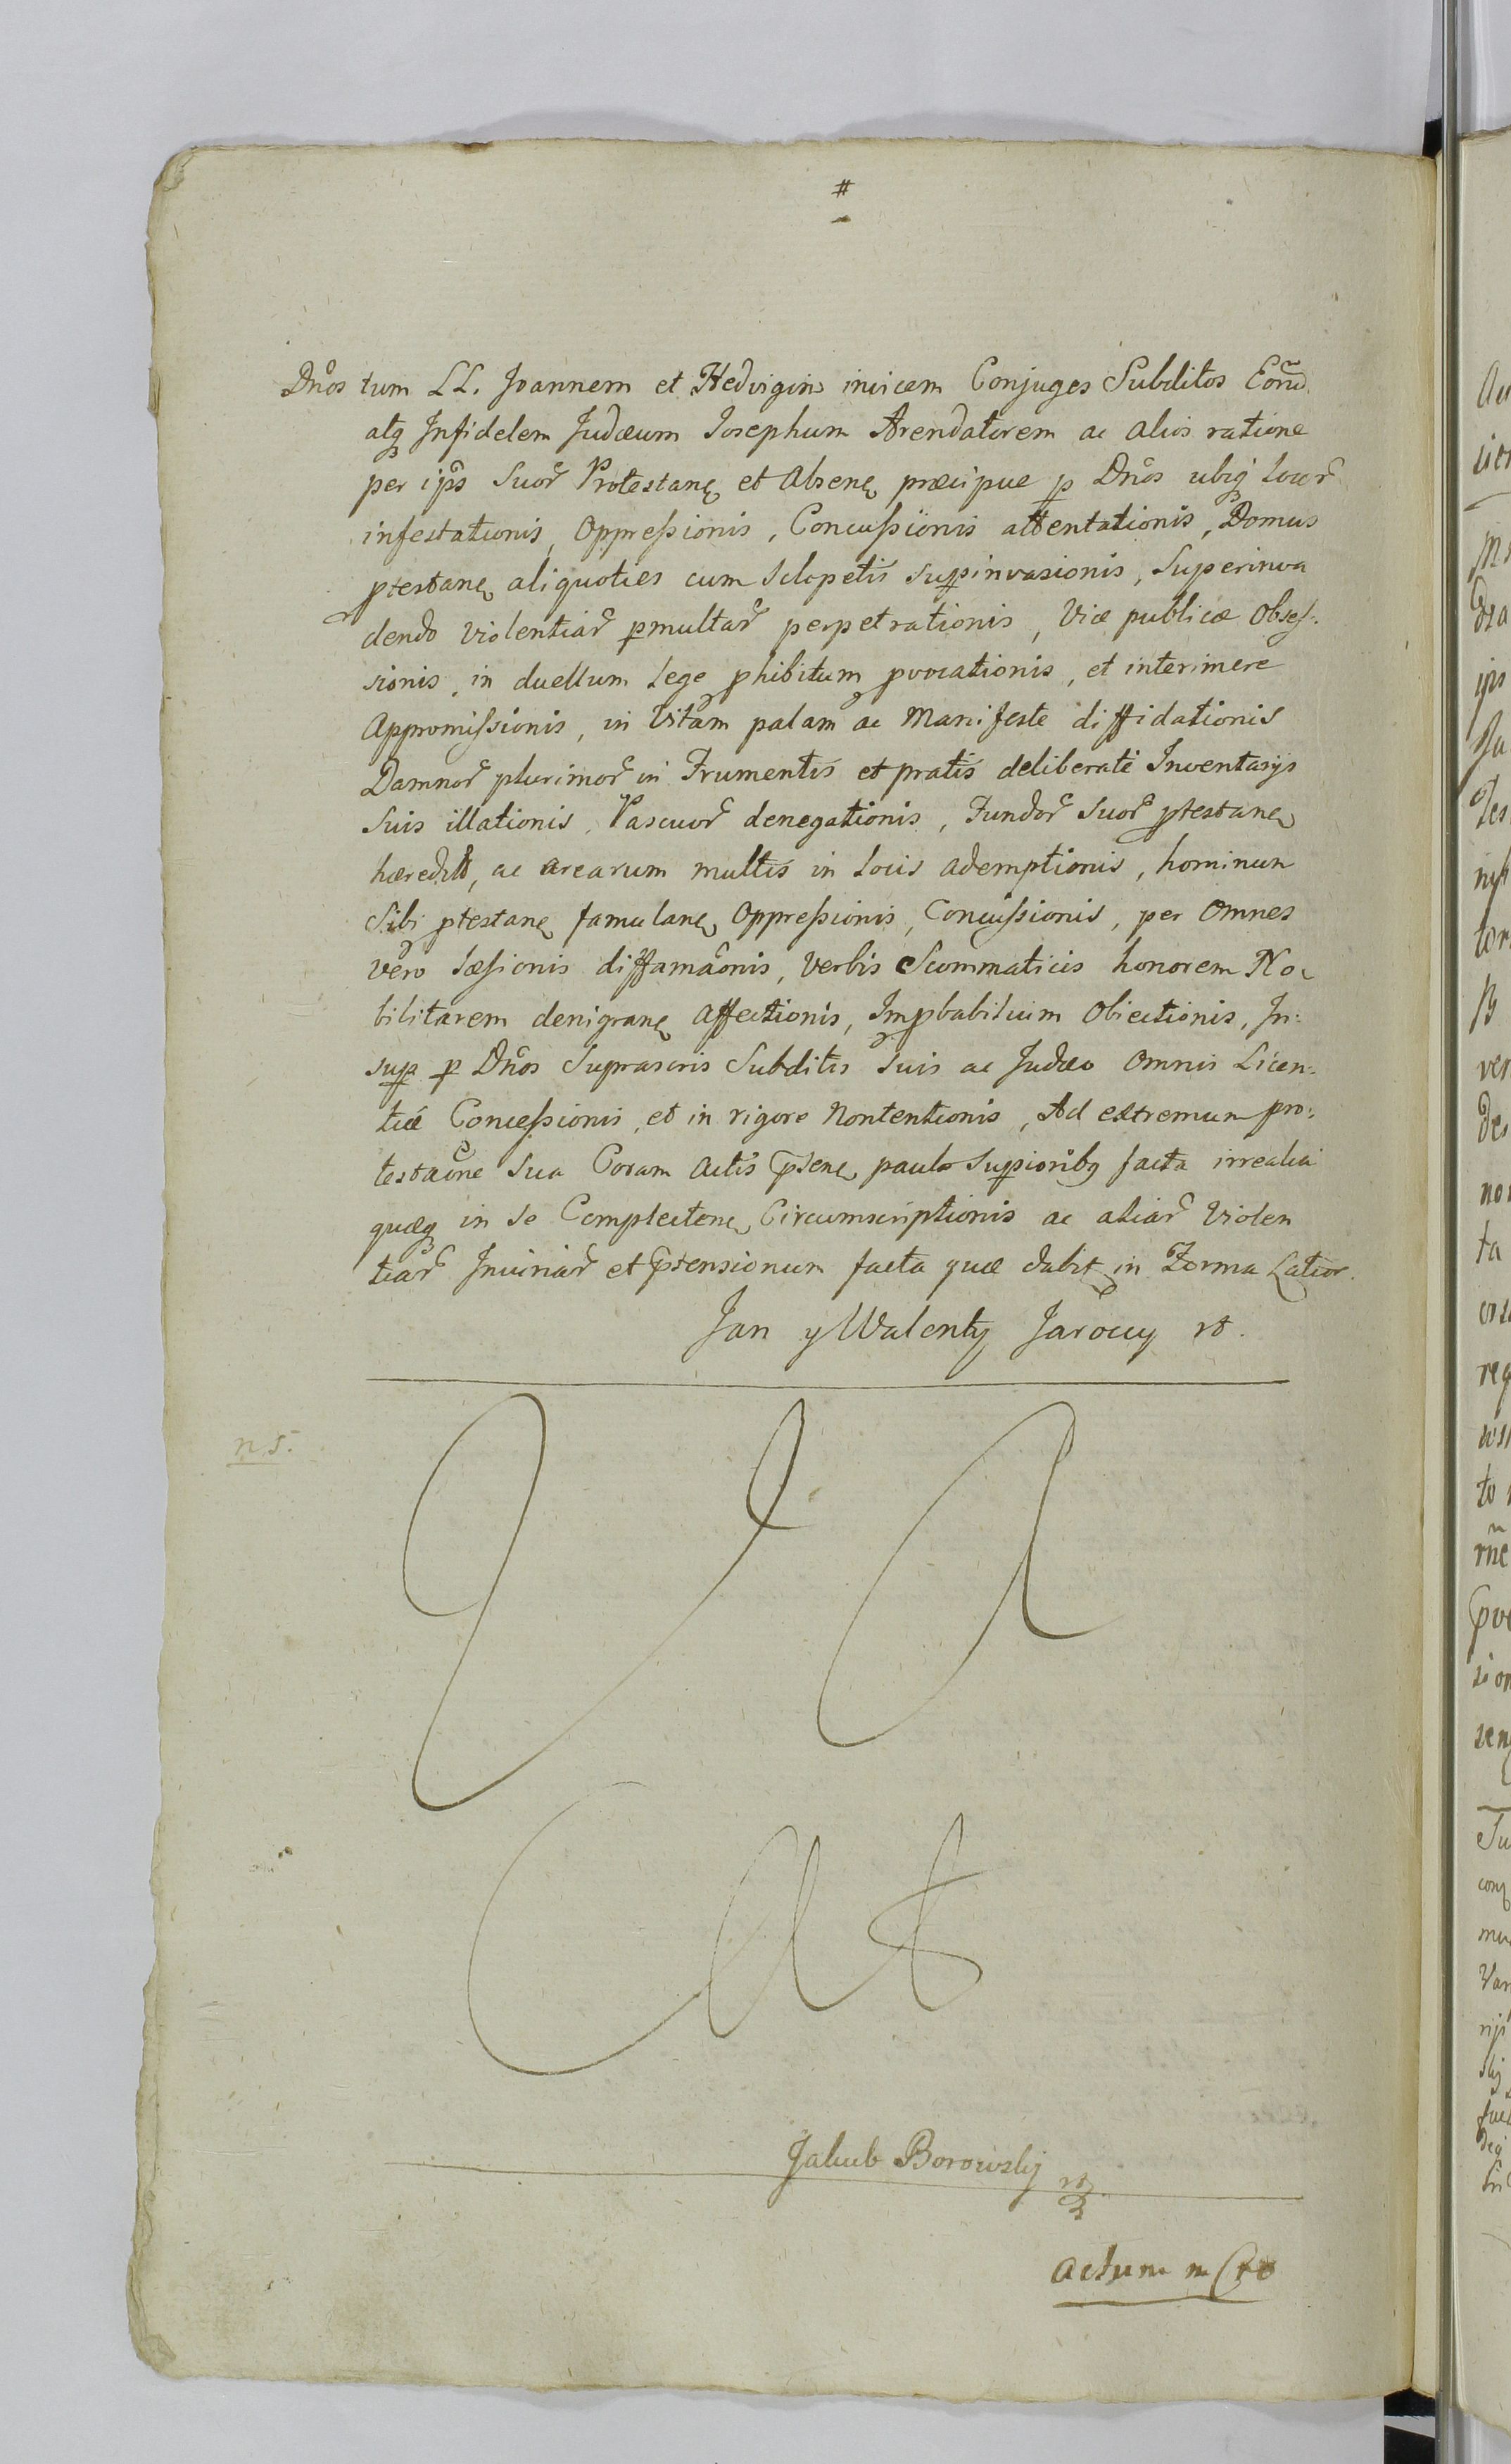 #
Dnos tum LL. Joannem et Hedvigim invicem Conjuges Subditos Eornd.
atq Infidelem Judæum Josephum Arendatorem ac alios ratione
per ips Suor Protestanę et Absenę præcipue p Dnos ubiq locor
infestationis, Oppressionis, Concussionis attentationis, Domus
ptestanę aliquoties cum Sclopetis suppinvasionis, Superinva
dendo violentiar pmultar perpetrationis, Viæ publicæ Obses:
sionis, in duellum Lege phibitum pvocationis, et interimere
Appromissionis, in Vitam palam ac Manifeste diffidationis
Damnor plurimor in Frumentis et pratis deliberate Inventarys
Suis illationis, Pascuor denegationis, Fundor Suor ptestanę
hæredit, ac arearum multis in Locis ademptionis, hominum
Sibi ptestanę famulanę Oppressionis, Concussionis, per Omnes
vero Læsionis diffamaonis, Verbis Scommaticis honorem No
bilitarem denigranę Affectionis, Impbabilium Obiectionis, In:
sup p Dnos Suprascris Subditis Suis ac Judæo Omnis Licen:
tiæ Concessionis, et in rigore Nontentionis, Ad extremum pro:
testaone Sua Coram Actis psenę paulo Suppioribq facta irrealia
quæq in Se Complectenę Circumscriptionis ac aliar Violen
tiar Iniuriar et ptensionum facta quæ dabit in Forma Latior.
Jan y Walenty Jaroccy
n 5.
Jakub Borowsky
Actum in Cro